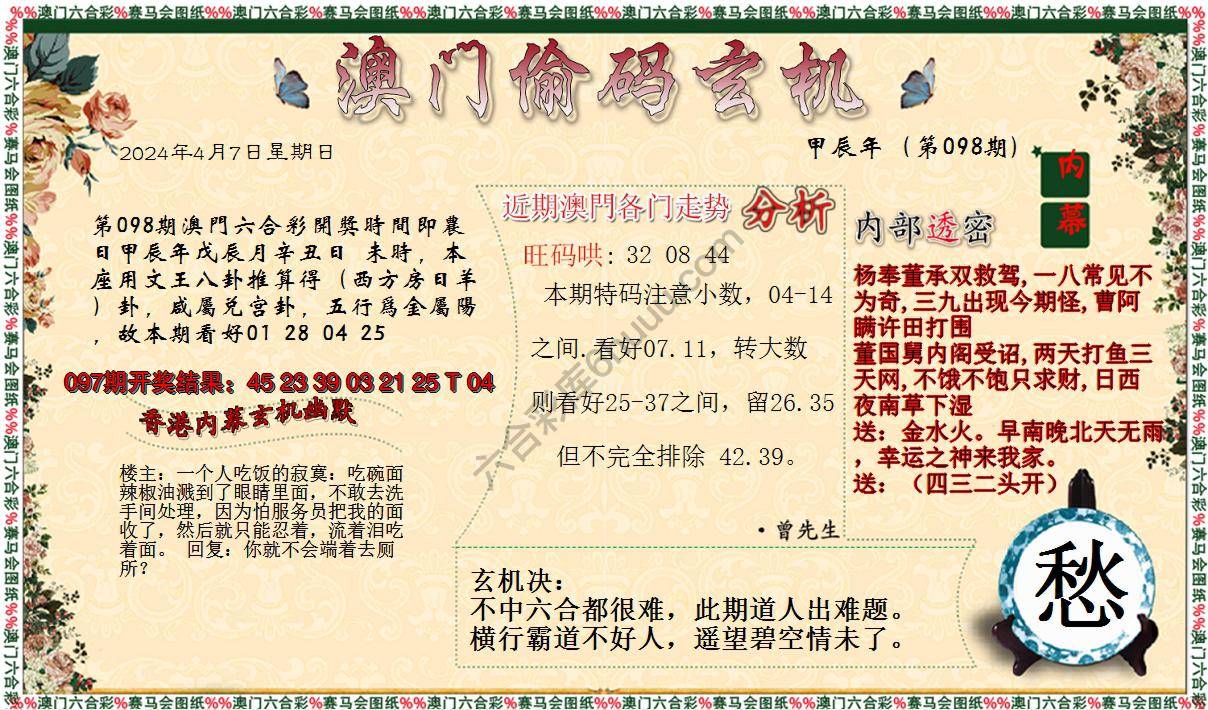 %%澳门六合彩%赛马会图纸%%澳门六合彩%赛马会图纸%%澳门六合彩%赛马会图纸%%澳门六合彩%赛马会图纸%%澳门六合彩%赛马会图纸%%澳门六合彩%赛马会图纸%%
澳门偷码玄机
2024年4月7日星期日
甲辰年（第098期）
内
幕
第098期澳門六合彩開獎時間即農
日甲辰年戊辰月辛丑日 未時，本
座用文王八卦推算得（西方房日羊
）卦，咸屬兑宫卦，五行爲金屬陽
，故本期看好01 28 04 25
097期开奖结果：45 23 39 03 21 25 T 04
香港内幕玄机幽默
楼主：一个人吃饭的寂寞：吃碗面
辣椒油溅到了眼睛里面，不敢去洗
手间处理，因为怕服务员把我的面
收了，然后就只能忍着，流着泪吃
着面。 回复：你就不会端着去厕
所？
近期澳門各门走势 分析
旺码哄: 32 08 44
本期特码注意小数，04-14
之间.看好07.11，转大数
则看好25-37之间，留26.35
但不完全排除 42.39。
·曾先生
内部透密
杨奉董承双救驾,一八常见不
为奇,三九出现今期怪,曹阿
瞒许田打围
董国舅内阁受诏,两天打鱼三
天网,不饿不饱只求财,日西
夜南草下湿
送：金水火。早南晚北天无雨
，幸运之神来我家。
送：（四三二头开）
玄机决：
不中六合都很难，此期道人出难题。
横行霸道不好人，遥望碧空情未了。
愁
%%澳门六合彩%赛马会图纸%%澳门六合彩%赛马会图纸%%澳门六合彩%赛马会图纸%%澳门六合彩%赛马会图纸%%澳门六合彩%赛马会图纸%%澳门六合彩%赛马会图纸%%